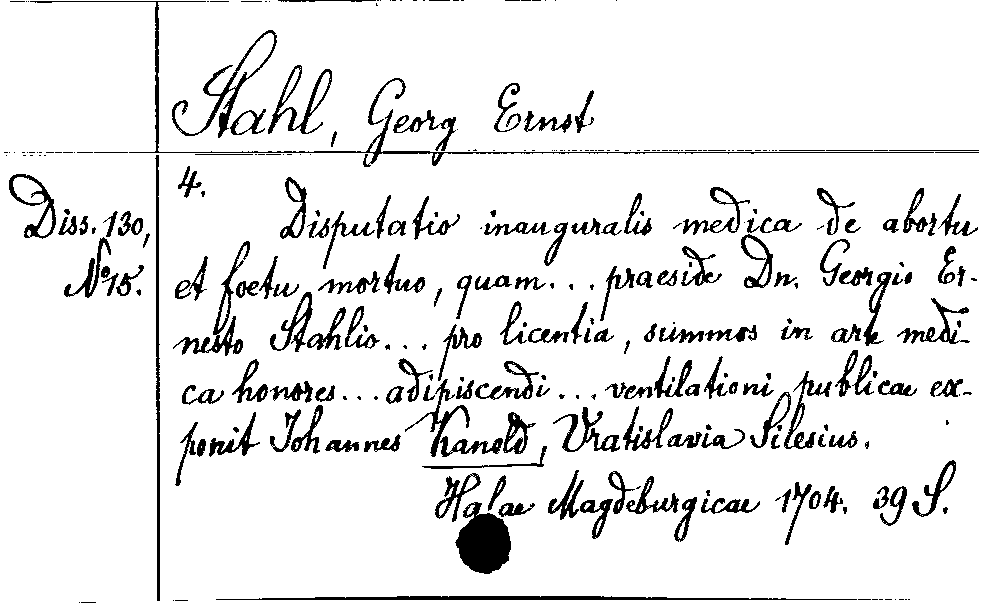 Stahl, Georg Ernst
4.
Diss. 130,
No 15.
Disputatio inauguralis medica de abortu
et foetu mortuo, quam... praeside Dn. Georgio Er-
nesto Stahlio... pro licentia, summos in arte medi-
ca honores... adipiscendi... ventilationi publicae ex-
ponit Johannes Kanold, Vratislavia Silesius.
Halae Magdeburgicae 1704. 39 S.